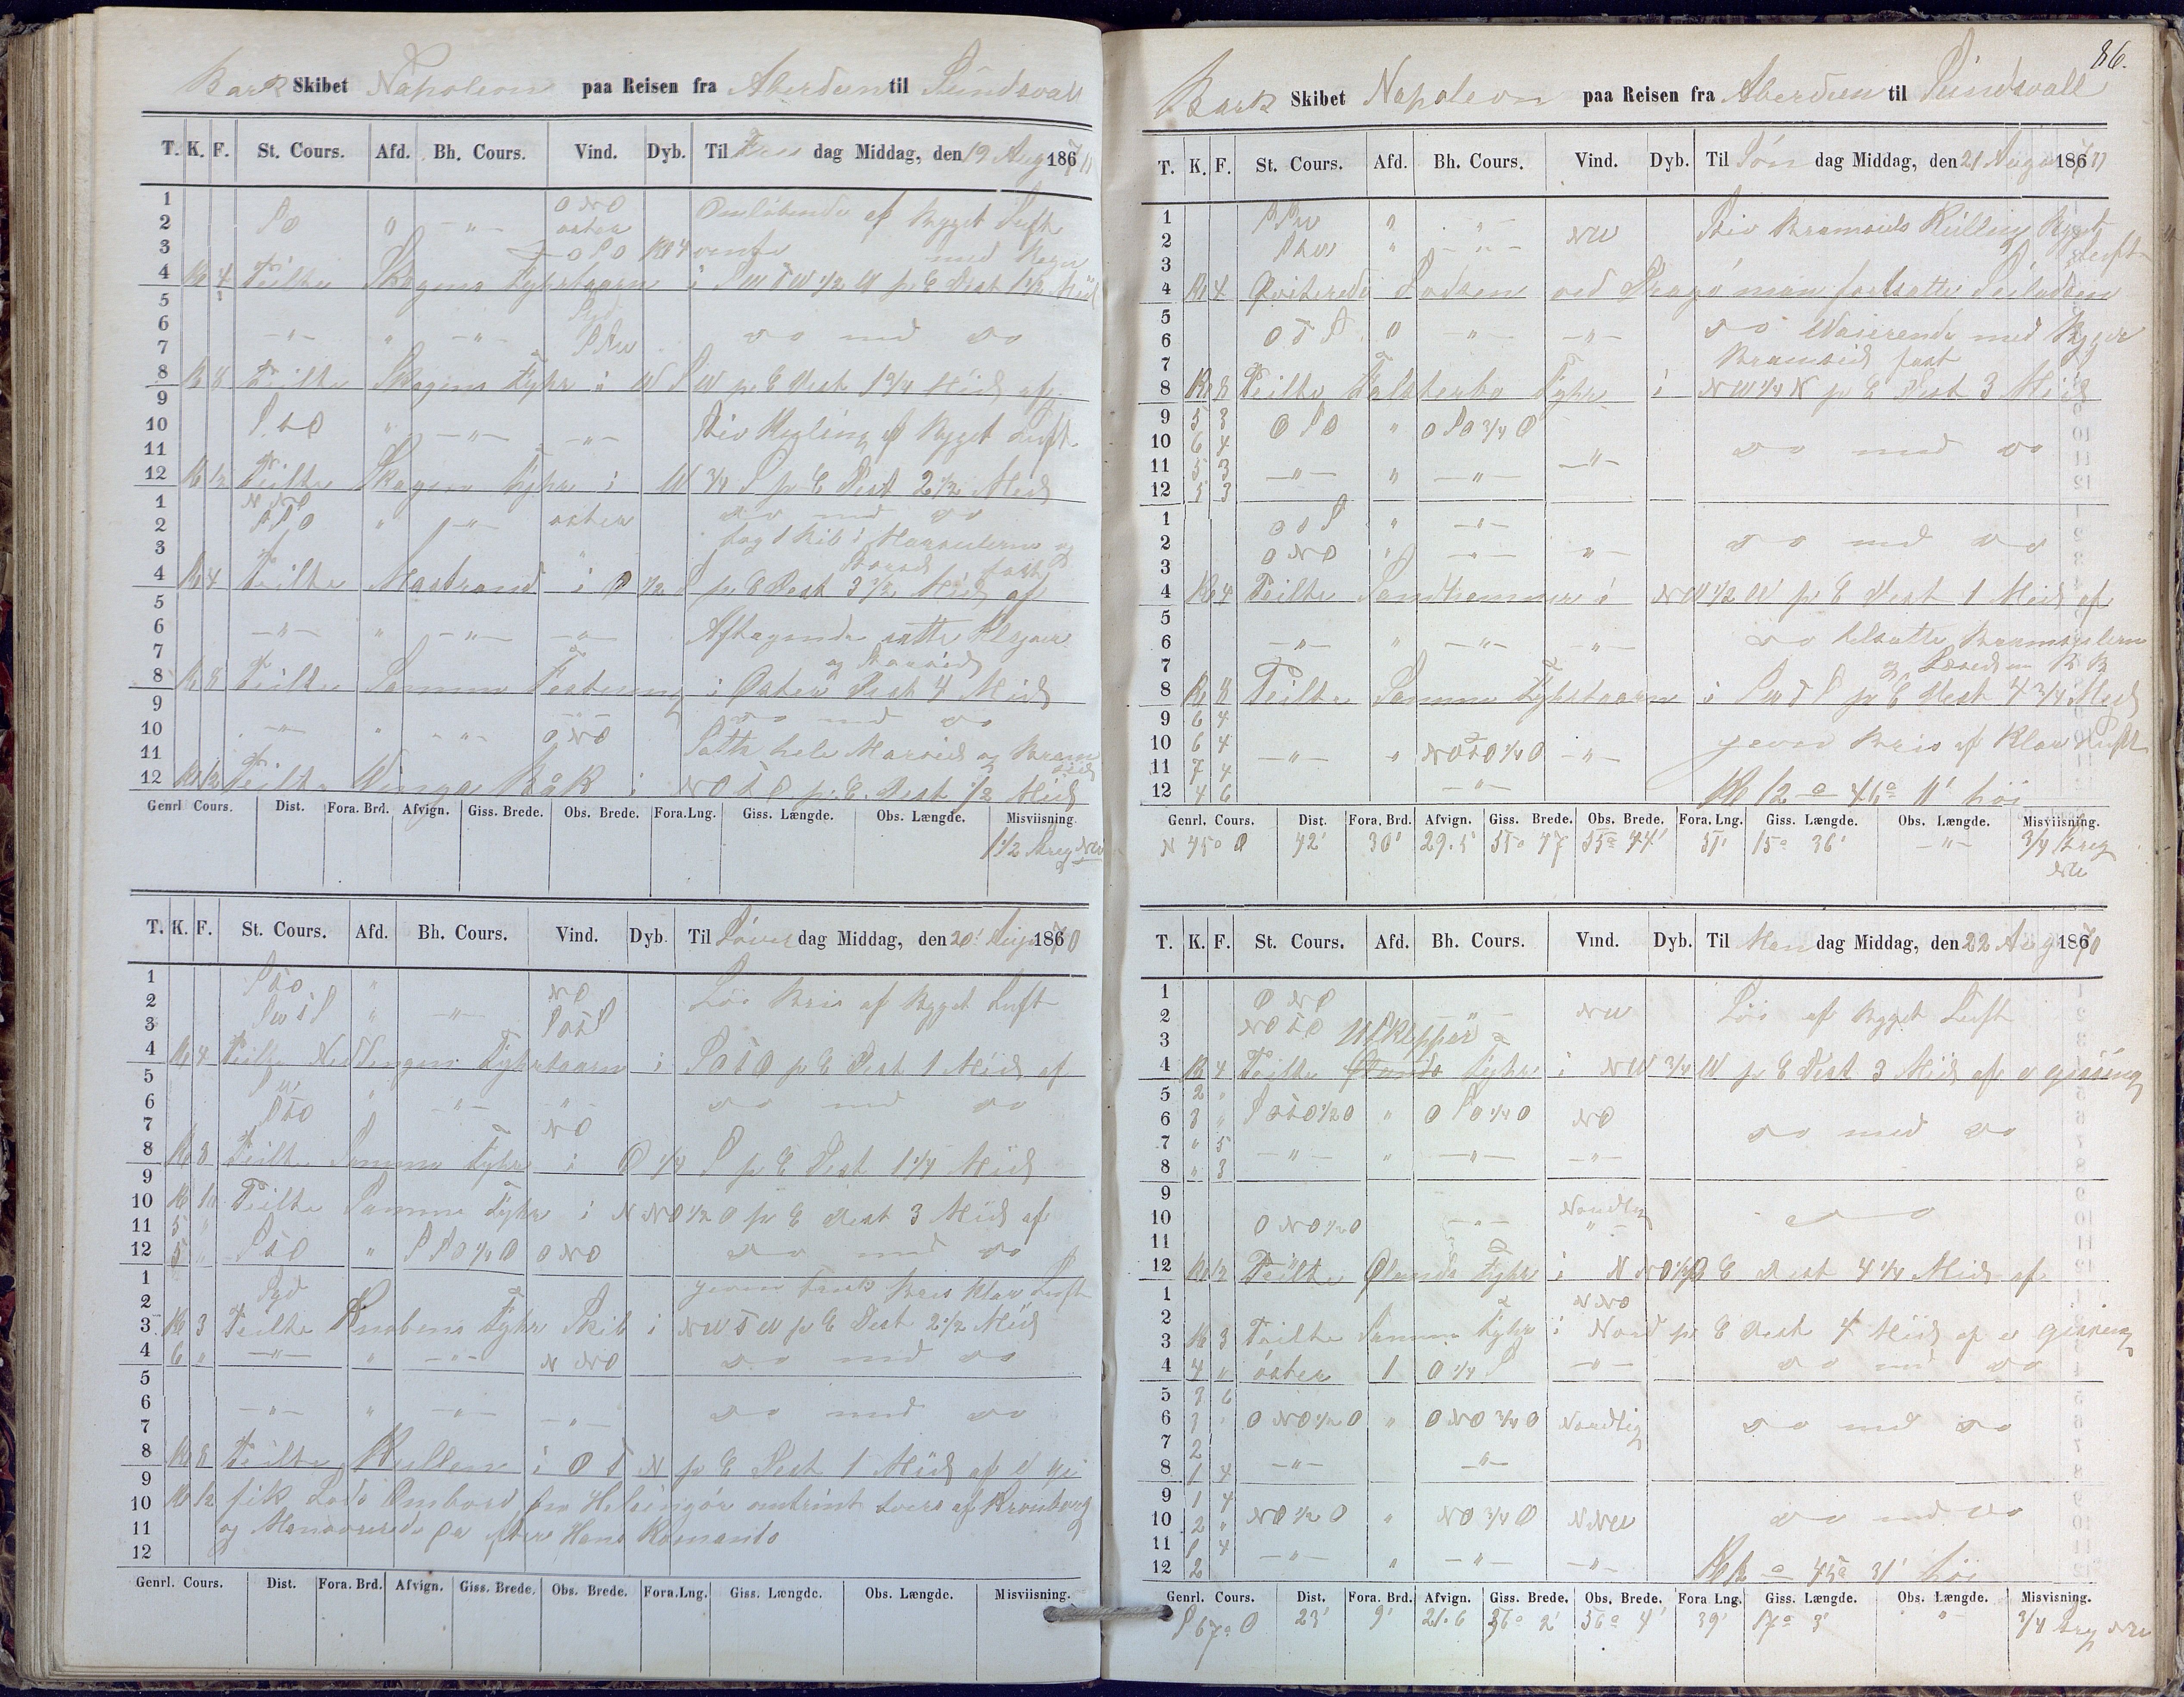 Bark Skibet Napoleon paa Reisen fra Aberdeen til Sundsvall
T. K. F. St. Cours. Afd. Bh. Cours. Vind. Dyb. Til dag Middag, den 19 Aug 1870
1 ONO Omløbende af Bygget Luft
2 SO " -"- oster
3 OSO med Regn
4 Kl 4 Peilte Skagens Fyhrtaarn i SWTW 1/2 W p E Dist 1 1/2 Miil
5 Syd
6 -"- " -"- SSW do med do
7
8 Kl 8 Peilte Skagens Fyhr i WSW p E Dist 1 3/4 Miil af
9
10 StO " -"- -"- Stiv Kuling af Bygget Luft
11
12 Kl 12 Peilte Skagens Fyhr i W 3/4 S p E Dist 2 1/2 Miil
1 do med do
2 SSO " -"- oster
3
4 Kl 4 Peilte Mastrand i O 1/2 S p E Dist 3 1/2 Miil af
5
6 -"- " -"- -"- Aftagende satte Klyver
7 og Storseil
8 Kl 8 Peilte Samme Festning i Oster Dist 4 Miil
9 do med do
10 -"- " -"- ONO
11 Satte hele Marseil og Bram
12 Kl 12 Peilte Winga Båk i NOtO p E. Dist 1/2 Miil
Genrl Cours. Dist. Fora. Brd. Afvign. Giss. Brede. Obs. Brede. Fora.Lng. Giss. Længde. Obs. Længde. Misviisning.
1 1/2 Streg NW
T. K. F. St. Cours. Afd. Bh. Cours. Vind. Dyb. Til Løver dag Middag, den 20' Augu 1870
1 StO " NO Løi Bris af Bygget Luft
2 SWtS " -"-
3
4 Kl 4 Peilte Niddingen Fyhrtaarn i SOtO p E Dist 1 Miil af
5
6 StO " -"- -"- do med do
7 NO
8 Kl 8 Peilte Samme Fyhr i O 1/4 S p E Dist 1 1/4 Miil
9
10 Kl 10 Peilte Samme Fyhr i NNO 1/2 O p E Dist 3 Miil af
11 5 "
12 5 " StO " SSO 1/2 O ONO do med do
1 Syd jevn frisk Bris klar Luft
2
3 Kl 3 Peilte Knobens Fyhr Skib i NWTW p E Dist 2 1/2 Miil
4 6 " -"- " -"- NNO do med do
5
6 -"- " -"- -"- do med do
7
8 Kl 8 Peilte Kullen i OTN p E Dist 1 Miil af
9
10 Kl 12 fik Lods Ombord fra Helsingør omtrint tvers af Kronborg
11 og Manøverede da efter Hans Komando
12
Genrl. Cours. Dist. Fora. Brd. Afvign. Giss. Brede. Obs. Brede. Fora.Lng. Giss. Længde. Obs. Længde. Misviisning.
86.
Bark Skibet Napoleon paa Reisen fra Aberdeen til Sundsvall
T. K. F. St. Cours. Afd. Bh. Cours. Vind. Dyb. Til Søn dag Middag, den 21 Augu 1870
1 SSW " " Stiv Bramseils Kulling Bygget
2 SSW " -"- NW Luft
3
4 Kl 4 Lodsen ved Dragø man fortsatte Seiladsen
5
6 OTS " -"- -"- do Waierende med Byger
7 Bramseil fast
8 Kl 8 Peilte Falsterbo Fyhr i NW 1/4 N p E Dist 3 Miil
9 5 3 OSO " OSO 3/4 O
10 6 4 do med do
11 5 3 -"- " -"- -"-
12 5 3
1 OOS " -"-
2 ONO " -"- -"- do med do
3
4 Kl 4 Peilte Sandhammer i NW 1/2 W p E Dist 1 Miil af
5
6 -"- " -"- -"- do tilsatte Bramseilerne
7
8 Kl 8 Peilte Samme Fyhrtaarn i SWTS p E Dist 4 3/4 Miil
9 6 4
10 6 4 -"- " NOtO 1/4 O -"- jevn Bris af Klar Luft
11 7 4
12 4 6 -"- Kl 12 - 46° 11' høi
Genrl. Cours. Dist. Fora. Brd. Afvign. Giss. Brede. Obs. Brede. Fora.Lng. Giss. Længde. Obs. Længde. Misviisning.
N 45° O 42' 30' 29.5 55° 47 55° 44' 51' 15° 36' -"- 3/4 Streg
NW
T. K. F. St. Cours. Afd. Bh. Cours. Vind. Dyb. Til Man dag Middag, den 22 Aug 1870
1 ONO NW Løi af Bygget Luft
2 NOtO Utkleppar
3
4 Kl 4 Peilte Fyhr i NW 3/4 W p E Dist 3 Miil af e gissing
5 2 "
6 3 " SOtO 1/2 O " OSO 1/4 O NO do med do
7 " 5
8 " 3 -"- " -"- -"-
9
10 ONO 1/2 O -"- Nordlig do
11
12 Kl 12 Peilte Ølands Fyhr i NNO 1/4 O E Dist 4 1/4 Miil af
1 NNO
2
3 Kl 3 Peilte Samme Fyhr i Nord p E Dist 4 Miil af e gissing
4 4 " öster 1 O 1/4 S -"- do med do
5 3 6
6 3 " ONO 1/2 O " ONO 3/4 O Nordlig do med do
7 2
8 1 4 -"- -"-
9 1 4
10 2 " NO 1/2 O " NO 3/4 O NNW do med do
11 4
12 2 -"- " -"- -"- 45° 31' høi
Genrl. Cours. Dist. Fora. Brd. Afvign. Giss. Brede. Obs. Brede. Fora Lng. Giss. Længde. Obs. Længde. Misvisning.
S 67° O 23' 9' 21.6 56° 2' 56° 4' 39' 17° 3' " 3/4 Streg NW